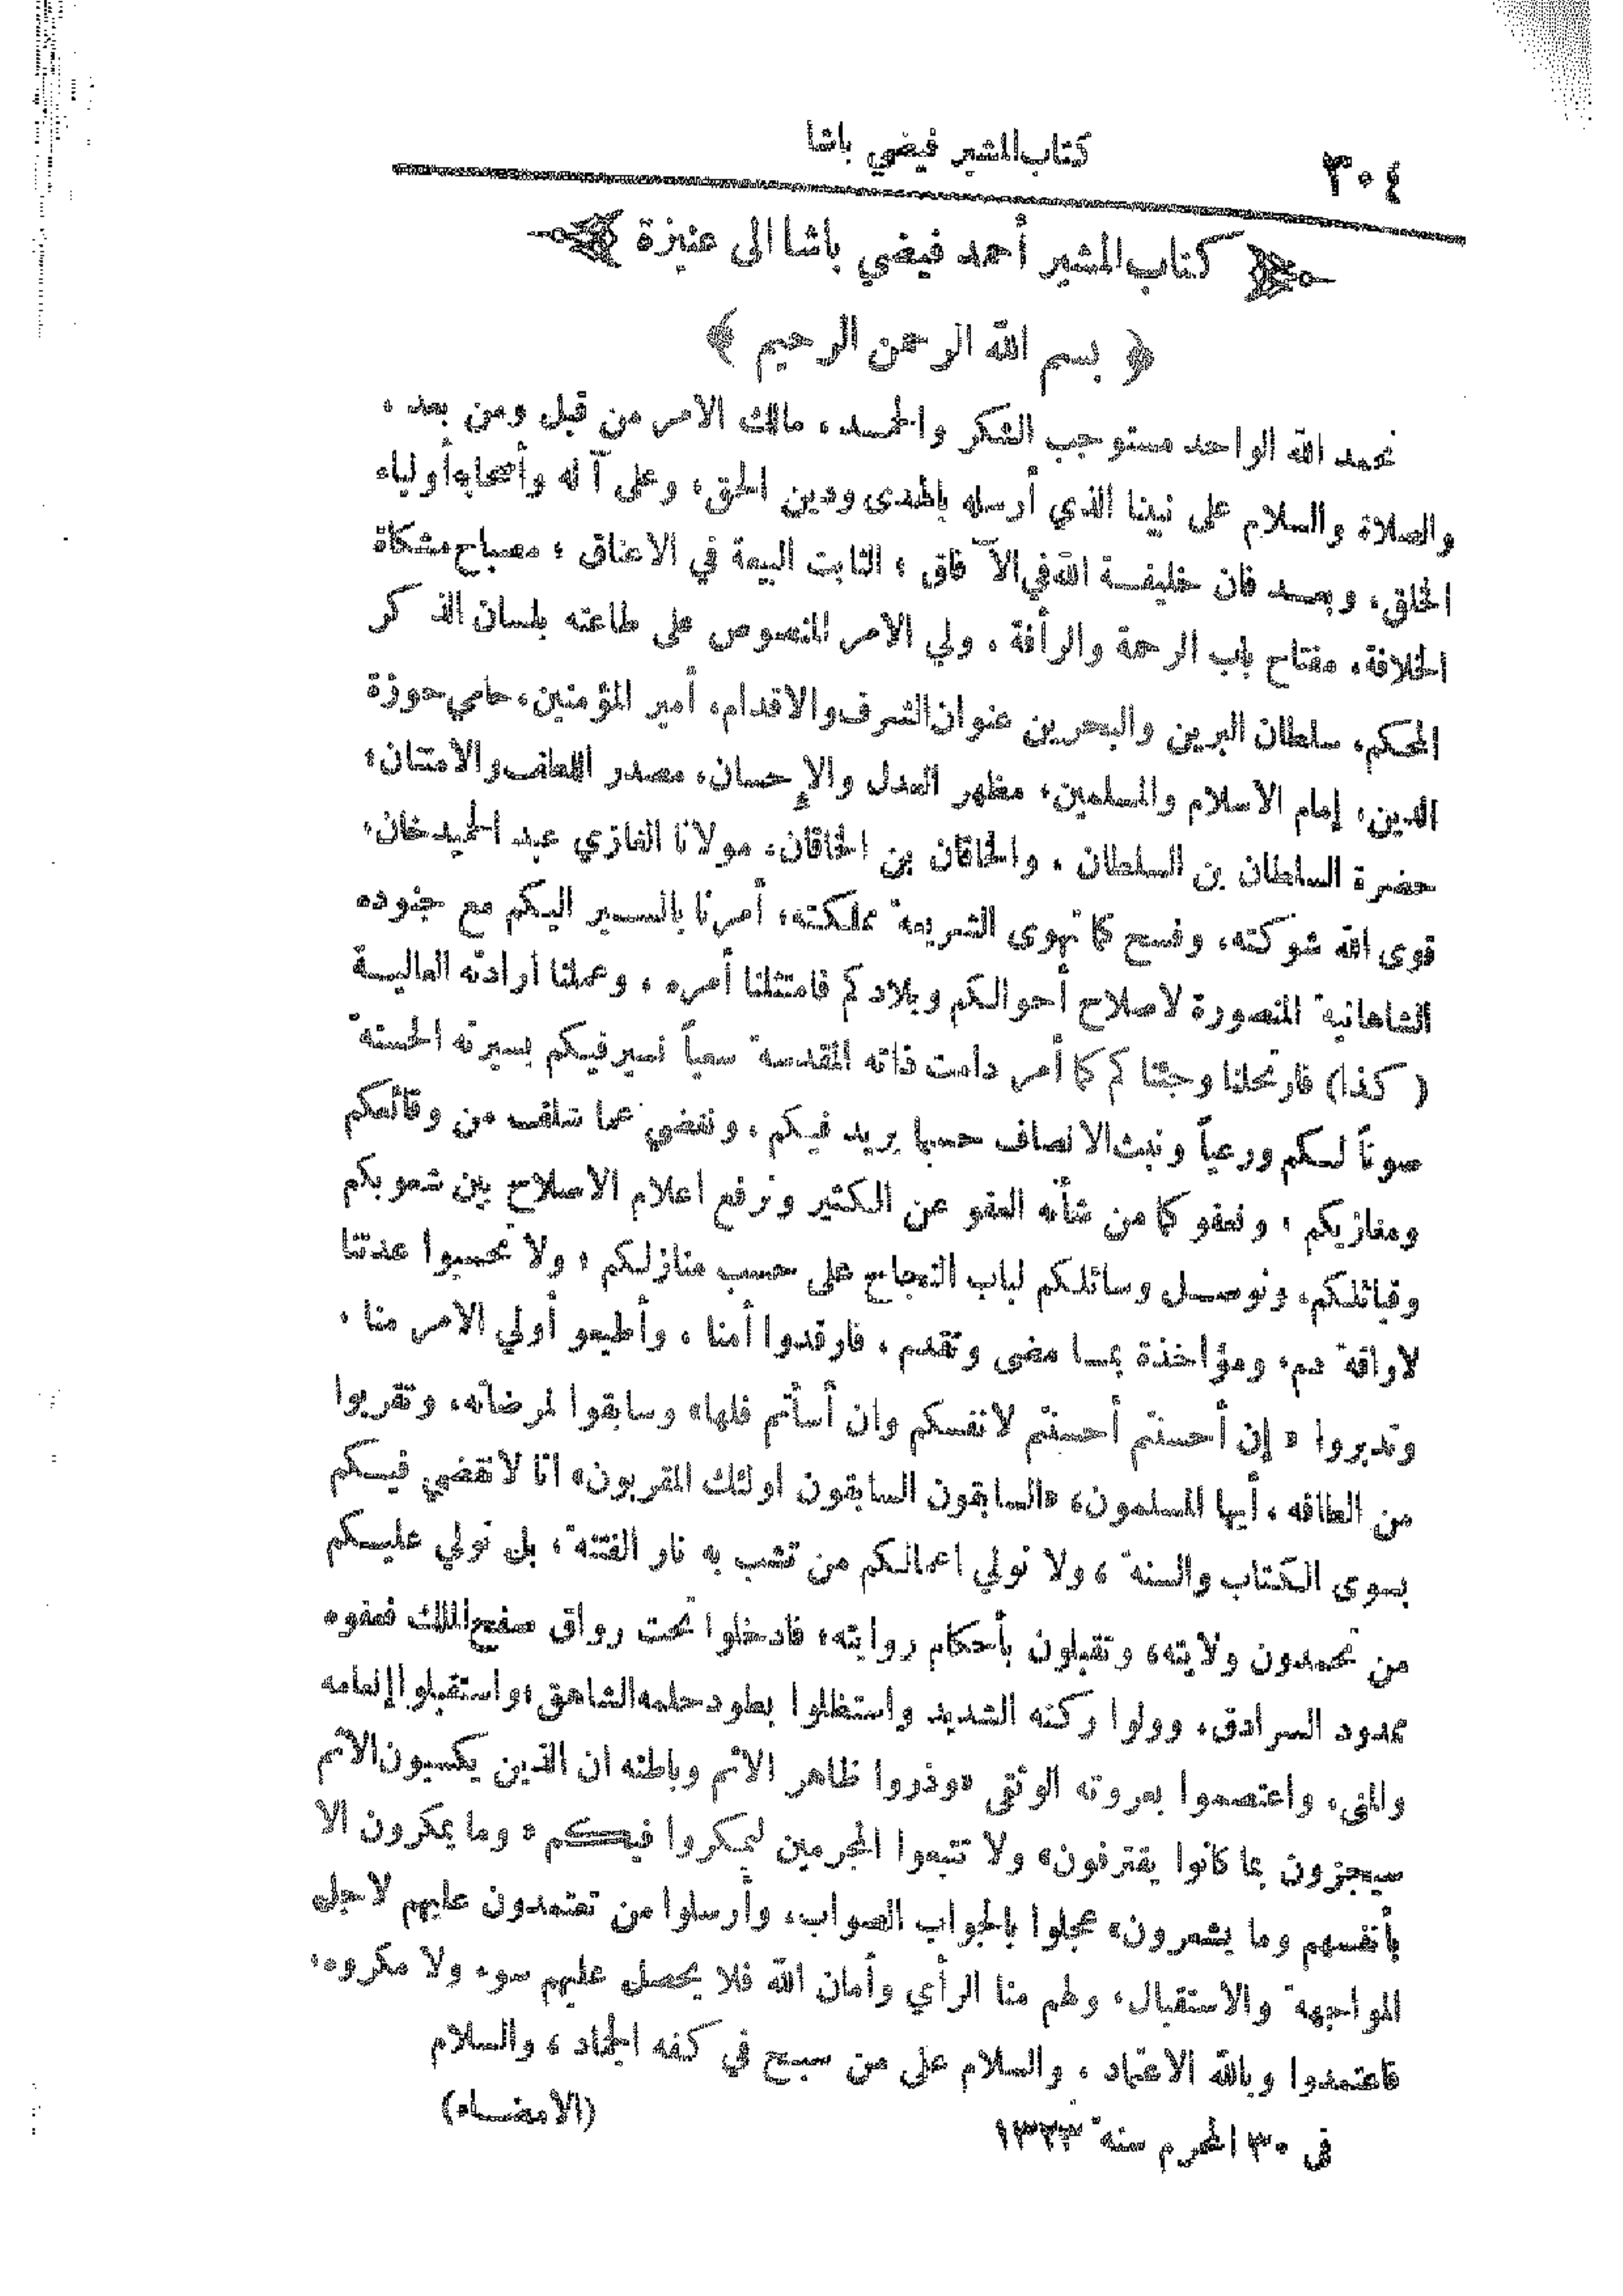 ٣٠٤
كتاب المشير فيضي باشا
﴿ كتاب المشير أحمد فيضي باشا الى عنيزة ﴾
﴿ بسم الله الرحمن الرحيم ﴾
نحمد الله الواحد مستوجب الشكر والحمد، مالك الامر من قبل ومن بعد،
والصلاة والسلام على نبينا الذي أرسله بالهدى ودين الحق، وعلى آله وأصحابه أولياء
الخلق، وبعد فان خليفة الله في الآفاق، الثابت البيعة في الاعناق، مصباح مشكاة
الخلافة، مفتاح باب الرحمة والرأفة، ولي الامر المنصوص على طاعته بلسان الذكر
المحكم، سلطان البرين والبحرين عنوان الشرف والاقدام، أمير المؤمنين، حامي حوزة
الدين، إمام الاسلام والمسلمين، مظهر العدل والإحسان، مصدر اللطف والامتنان،
حضرة السلطان بن السلطان، والخاقان بن الخاقان، مولانا الغازي عبد الحميد خان،
قوى الله شوكته، وفسح كما تهوى الشريعة مملكته، أمرنا بالسير اليكم مع جنوده
الشاهانية المنصورة لاصلاح أحوالكم وبلادكم فامتثلنا أمره، وعملنا ارادته العالية
(كذا) فارتحلنا وجئناكم كما أمر دامت ذاته المقدسة سعياً نسير فيكم بسيرته الحسنة
صوناً لكم ورعياً ونبث الانصاف حسبما يريد فيكم، ونغضي عما سلف من وقائعكم
ومغازيكم، ونعفو كما من شأنه العفو عن الكثير ونرفع اعلام الاصلاح بين شعوبكم
وقبائلكم، ونوصل وسائلكم لباب النجاح على حسب منازلكم، ولا تحسبوا عدتنا
لاراقة دم، ومؤاخذة بما مضى وتقدم، فارقدوا أمنا، وأطيعو أولي الامر منا،
وتدبروا «إن أحسنتم أحسنتم لانفسكم وان أسأتم فلها» وسابقوا لمرضاته، وتقربوا
من الطافه، أيها المسلمون، «السابقون السابقون اولئك المقربون» انا لا نقضي فيكم
بسوى الكتاب والسنة، ولا نولي اعمالكم من تشب به نار الفتنة، بل نولي عليكم
من تحمدون ولايته، وتقبلون بأحكام روايته، فادخلوا تحت رواق صفح الملك فعفوه
ممدود السرادق، وولوا ركنه الشديد واستظلوا بطود حلمه الشاهق، واستقبلوا إنعامه
والمنى، واعتصموا بعروته الوثقى «وذروا ظاهر الاثم وباطنه ان الذين يكسبون الاثم
سيجزون بما كانوا يقترفون» ولا تتبعوا المجرمين ليمكروا فيكم «وما يمكرون الا
بأنفسهم وما يشعرون» عجلوا بالجواب الصواب، وأرسلوا من تعتمدون عليهم لاجل
المواجهة والاستقبال، ولهم منا الرأي وأمان الله فلا يحصل عليهم سوء ولا مكروه،
فاعتمدوا وبالله الاعتماد، والسلام على من سبح في كفه الجماد، والسلام
في ٣٠ المحرم سنة ١٣٢٣ (الامضاء)